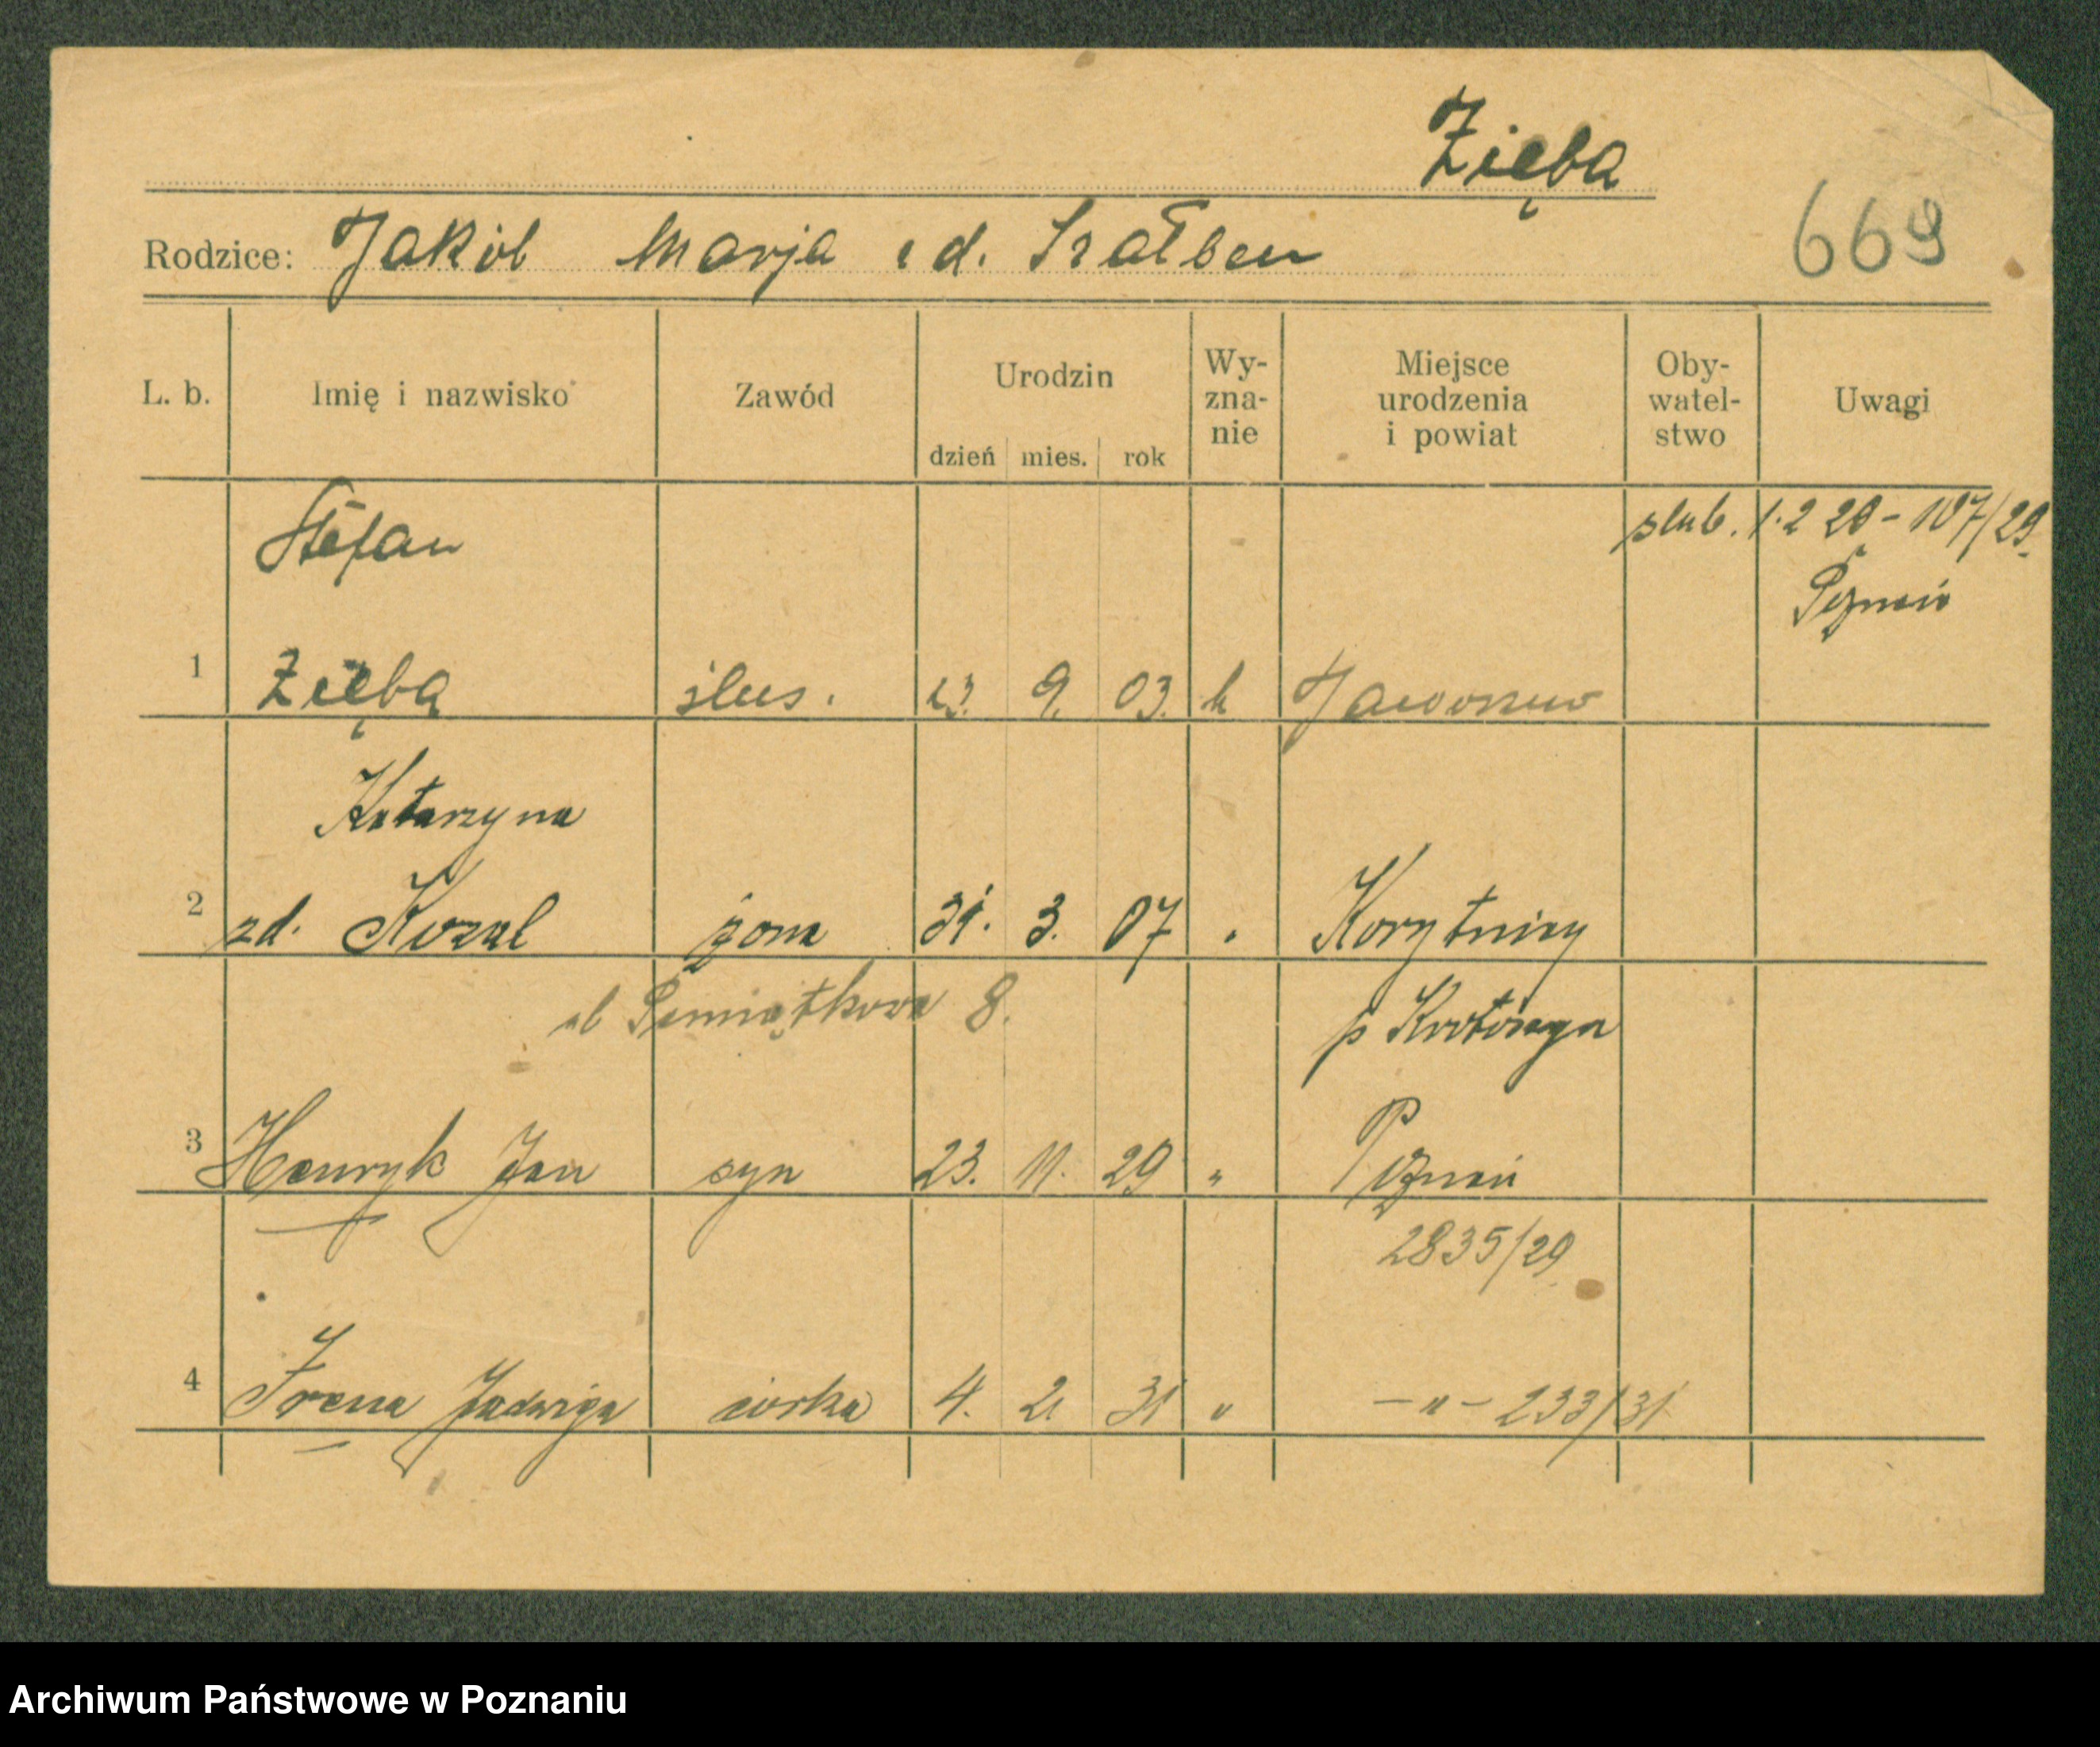 Zięba
Rodzice: Jakób Marja zd. Szałben
669
L. b. Imię i nazwisko Zawód Urodzin dzień mies. rok Wy-zna-nie Miejsce urodzenia i powiat Oby-watel-stwo Uwagi
Stefan ślub. 1.2 29 - 107/29
Poznań
1 Zięba ślus. 23. 9. 03. k
Katarzyna
2 zd. Kozal żona 31. 3. 07 " Korytnicy
ul Pamiątkowa 8. p Krotoszyn
3 Henryk Jan syn 23. 11. 29 " Poznań
2835/29
4 Irena Jadwiga córka 4. 2 31 " -"- 233/31
Archiwum Państwowe w Poznaniu